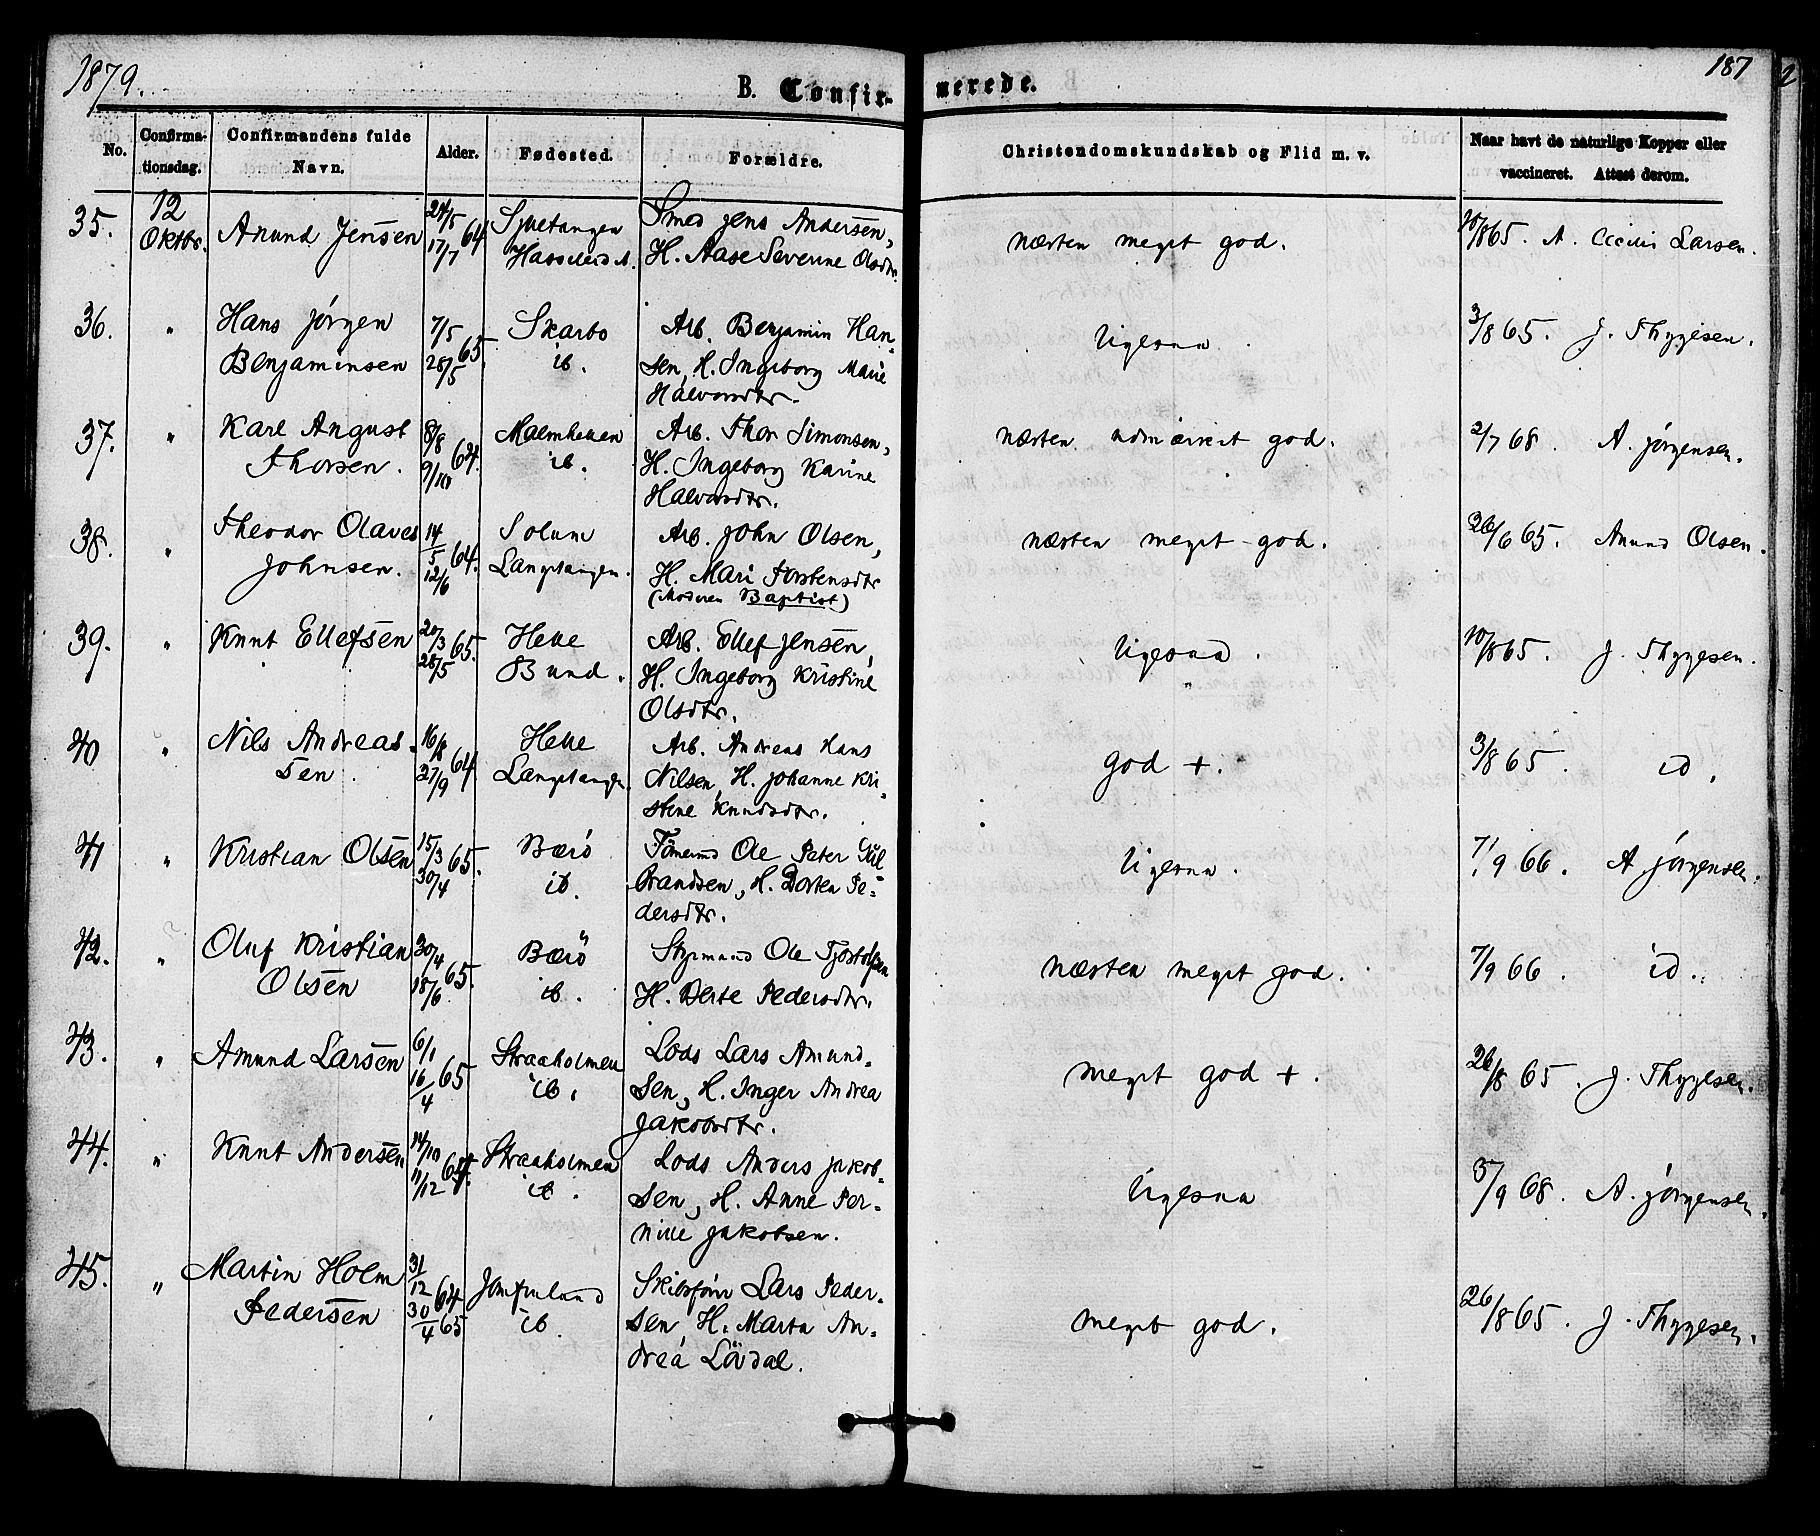 1879.
187
2
B. Confir-
merede.
No.
Confirma-
tionsdag.
Confirmandens fulde
Navn.
Alder.
Fødested.
Forældre.
Christendomskundskab og Flid m. v.
Naar havt de naturlige Kopper eller
vaccineret. Attest derom.
35. 12 Oktbr. Anund Jensen 24/5 64 17/7
Smed Jens Andersen,
H. Aase Severine Olsdtr.
næsten meget god. 10/8 65. A. Cecilie Larsen.
36. " Hans Jörgen
Benjaminsen
7/5 65. 28/5
Skarbo
ib.
Arb. Benjamin Han-
sen, H. Ingeborg Marie
Halvorsdtr.
ligesaa. 3/8 65. J. Thygesen.
37. " Karl August
Thorsen.
8/8 64. 9/10
Malmhellen
ib.
Arb. Thor Simonsen,
H. Ingeborg Karine
Halvorsdtr.
næsten udmærket god. 2/7 68. A. Jörgensen.
38. " Theodor Olaves
Johnsen.
14/5 64. 12/6
Solum
Langetangen.
Arb. John Olsen,
H. Mari Torstensdtr
(Moderen Baptist)
næsten meget god. 26/6 65. Anund Olsen.
39. " Knut Ellefsen 20/3 65. 28/5
Helle
Bund.
Arb. Ellef Jensen,
H. Ingeborg Kristine
Olsdtr.
ligesaa. 10/8 65. J. Thygesen.
40 " Nils Andreas-
sen.
16/8 64 27/9
Helle
Langetangen
Arb. Andreas Hans
Nilsen, H. Johanne Kri-
stine Knudsdtr.
god +. 3/8 65. id.
41 " Kristian Olsen 15/3 65. 30/4
Bærö
ib.
Tömmermd Ole Peter Gul-
brandsen, H. Dorten Pe-
dersdtr.
ligesaa. 7/9 66. A. Jörgensen.
42. " Oluf Kristian
Olsen
30/4 65. 18/6
Bærö
ib.
Styrmand Ole Tjöstolfsen
H. Berte Pedersdtr.
næsten meget god. 7/9 66. id.
43. " Amund Larsen 6/1 65 16/4
Straaholmen
ib.
Lods Lars Amund-
sen, H. Inger Andrea
Jakobsdtr.
meget god +. 26/8 65. J. Thygesen.
44. " Knut Andersen 14/10 64. 11/12
Straaholmen
ib.
Lods Anders Jakob-
sen, H. Anne Per-
nille Jakobsen.
ligesaa 3/9 68. A. Jörgensen.
45. " Martin Holm
Pedersen
31/12 64 30/4 65
Jomfruland
ib.
Skibsförer Lars Peder-
sen, H. Marta An-
drea Lövdal.
meget god. 26/8 65. J. Thygesen.